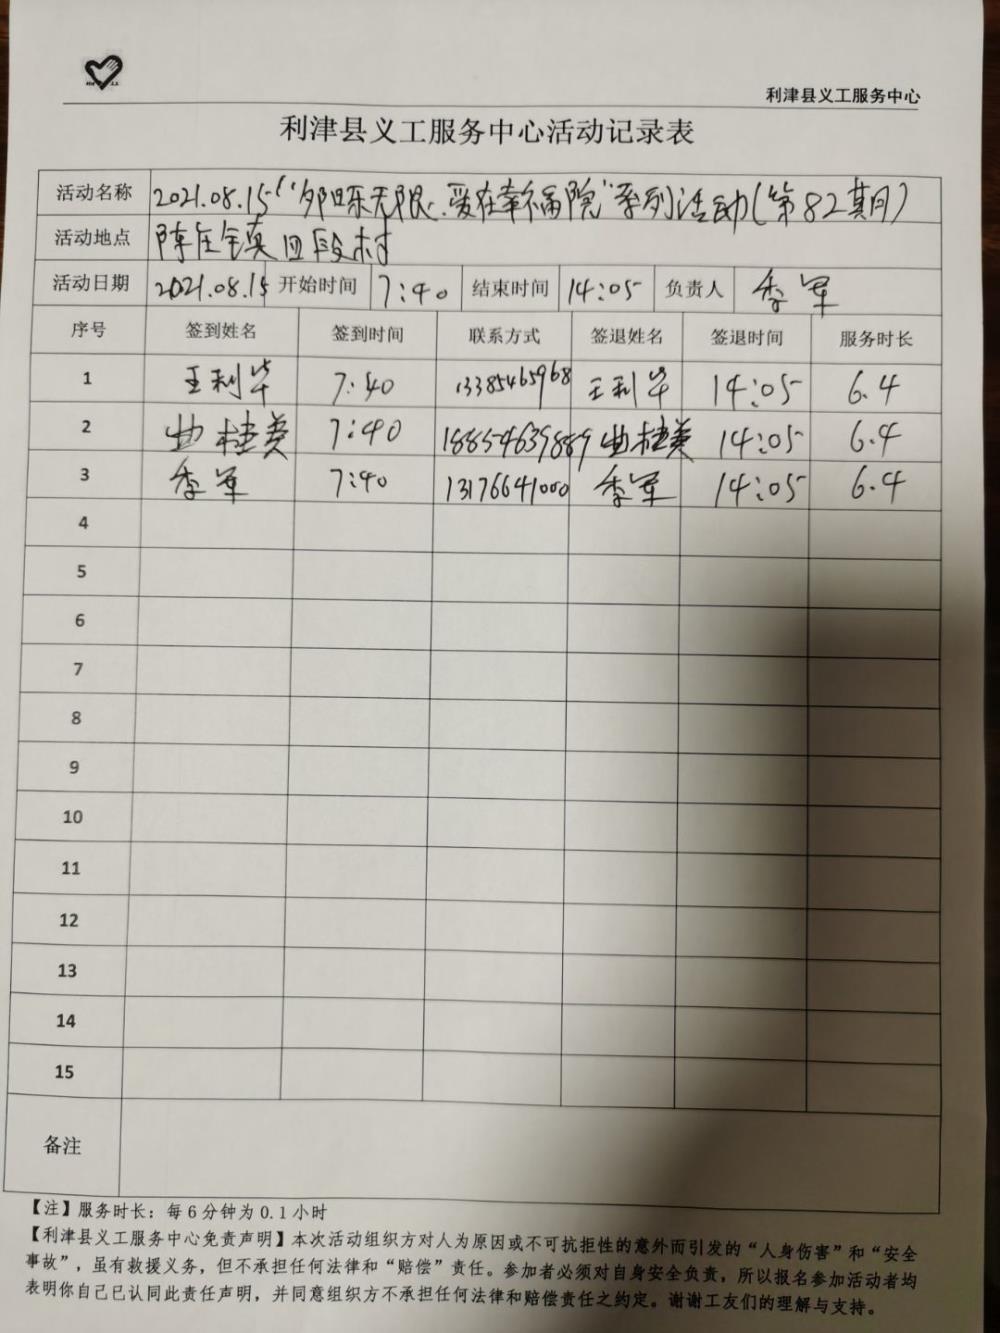 利津县义工服务中心
利津县义工服务中心活动记录表
活动名称 2021.08.15“夕阳乐无限、爱在幸福院”系列活动(第82期)
活动地点 陈庄镇四段村
活动日期 2021.08.15 开始时间 7:40 结束时间 14:05 负责人 李军
序号 签到姓名 签到时间 联系方式 签退姓名 签退时间 服务时长
1 王利华 7:40 13385465968 王利华 14:05 6.4
2 曲桂美 7:40 18854639889 曲桂美 14:05 6.4
3 李军 7:40 13176641000 李军 14:05 6.4
4
5
6
7
8
9
10
11
12
13
14
15
备注
【注】服务时长：每6分钟为0.1小时
【利津县义工服务中心免责声明】本次活动组织方对人为原因或不可抗拒性的意外而引发的“人身伤害”和“安全
事故”，虽有救援义务，但不承担任何法律和“赔偿”责任。参加者必须对自身安全负责，所以报名参加活动者均
表明你自己已认同此责任声明，并同意组织方不承担任何法律和赔偿责任之约定。谢谢工友们的理解与支持。